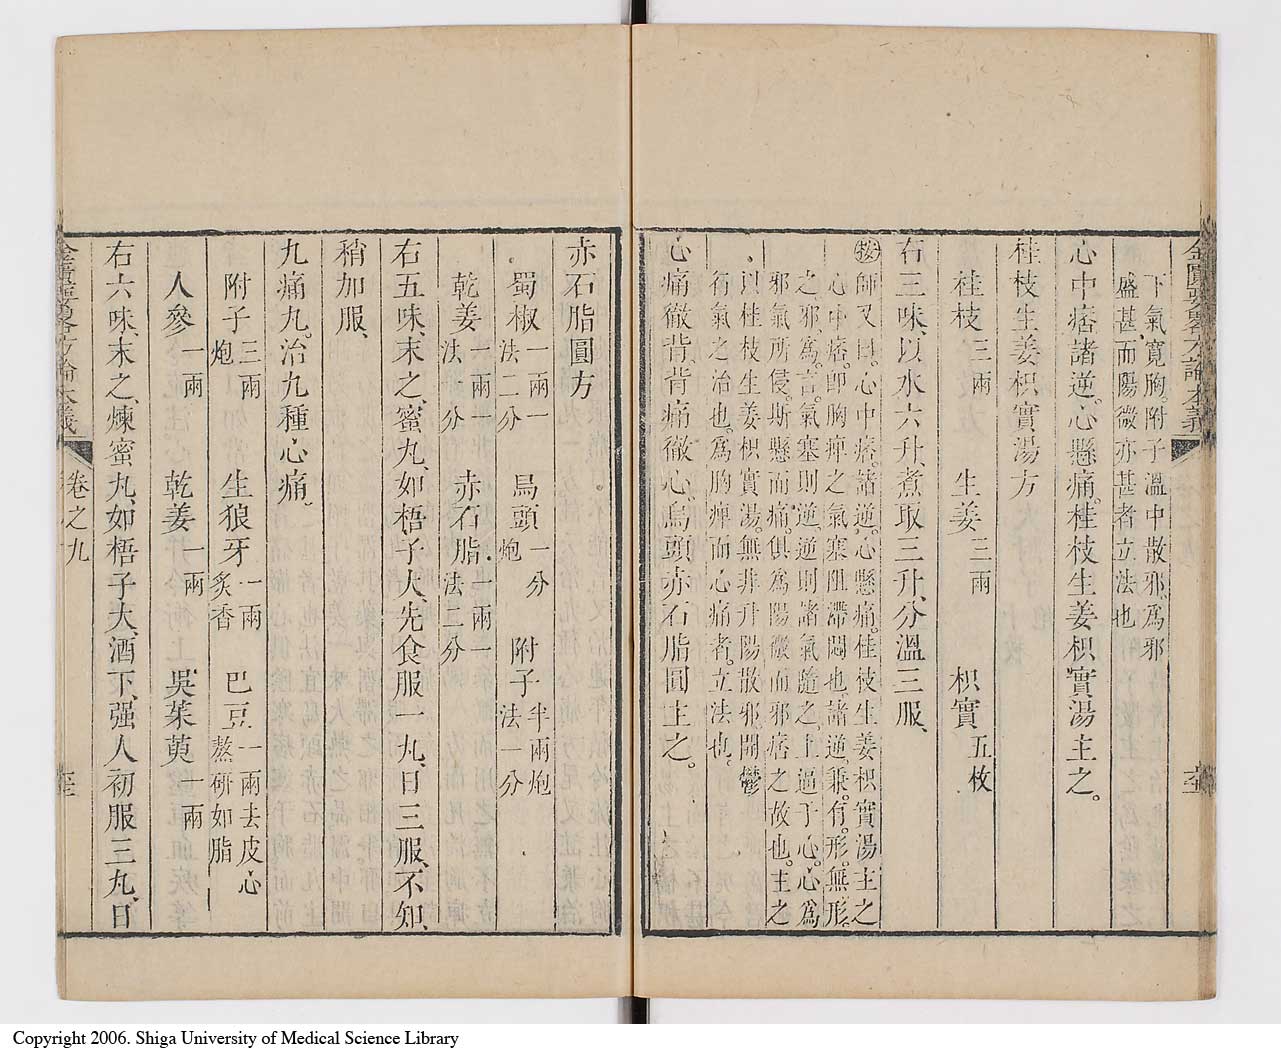 金匱要略方論本義
下氣寬胸。附子溫中散邪。爲邪
盛甚而陽微亦甚者立法也
心中痞諸逆。心懸痛。桂枝生姜枳實湯主之。
桂枝生姜枳實湯方
桂枝三兩 生姜三兩 枳實五枚
右三味、以水六升、煮取三升、分溫三服、
按師又曰。心中痞。諸逆。心懸痛。桂枝生姜枳實湯主之
心中痞。卽胸痺之氣塞阻滯悶也。諸逆。兼有形。無形。
之邪爲言。氣塞則逆。逆則諸氣隨之。上逼于心。心爲
邪氣所侵。斯懸而痛。俱爲陽微而邪痞之故也。主之
以桂枝生姜枳實湯。無非升陽散邪。開鬱
行氣之治也。爲胸痺而心痛者。立法也。
心痛徹背。背痛徹心。烏頭赤石脂圓主之。
赤石脂圓方
蜀椒一兩一法二分 烏頭一分炮 附子半兩炮法一分
乾姜一兩一法一分 赤石脂一兩一法二分
右五味、末之、蜜丸、如梧子大、先食服一丸、日三服、不知、
稍加服、
九痛丸。治九種心痛。
附子三兩炮 生狼牙一兩炙香 巴豆一兩去皮心熬研如脂
人參一兩 乾姜一兩 吳茱萸一兩
右六味、末之、煉蜜丸、如梧子大、酒下、强人初服三丸、日
金匱要略方論本義
卷之九
Copyright 2006. Shiga University of Medical Science Library